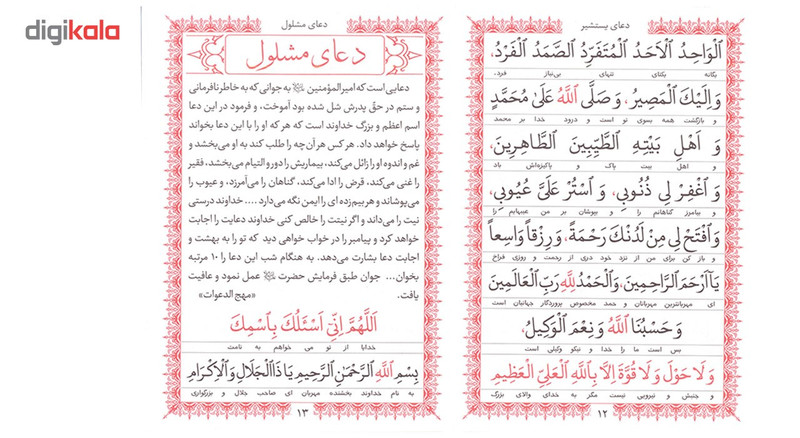 digikala
دعای یستشیر
اَلْواحِدُ الْاَحَدُ الْمُتَفَرِّدُ الصَّمَدُ الْفَرْدُ،
یگانه یکتای تنهای بی‌نیاز فرد،
وَ اِلَیْكَ الْمَصیرُ، وَ صَلَّی اللّٰهُ عَلیٰ مُحَمَّدٍ
و بازگشت همه بسوی تو است و درود خدا بر محمد
وَ اَهْلِ بَیْتِهِ الطَّیِّبینَ الطّاهِرینَ،
و اهل بیت پاک و پاکیزه‌اش باد
وَ اغْفِرْ لی ذُنُوبی، وَ اسْتُرْ عَلَیَّ عُیُوبی،
و بیامرز گناهانم را و بپوشان بر من عیبهایم را
وَافْتَحْ لی مِنْ لَدُنْكَ رَحْمَةً، وَ رِزْقاً واسِعاً
و باز کن برای من از نزد خود دری از رحمت و روزی فراخ
یا اَرْحَمَ الرّاحِمینَ، وَالْحَمْدُ لِلّٰهِ رَبِّ الْعالَمینَ
ای مهربانترین مهربانان و حمد مخصوص پروردگار جهانیان است
وَ حَسْبُنَا اللّٰهُ وَ نِعْمَ الْوَکیلُ،
بس است ما را خدا و نیکو وکیلی است
وَ لا حَوْلَ وَ لا قُوَّةَ اِلّا بِاللّٰهِ الْعَلِیِّ الْعَظیمِ
و جنبش و نیرویی نیست مگر به خدای والای بزرگ
۱۲
دعای مشلول
دعای مشلول
دعایی است که امیرالمؤمنین ﷺ به جوانی که به خاطر نافرمانی
و ستم در حقّ پدرش شل شده بود آموخت، و فرمود در این دعا
اسم اعظم و بزرگ خداوند است که هر که او را با این دعا بخواند
پاسخ خواهد داد. هر کس هر آن‌چه را طلب کند به او می‌بخشد و
غم و اندوه او را زائل می‌کند، بیماریش را دور و التیام می‌بخشد، فقیر
را غنی می‌کند، قرض را ادا می‌کند، گناهان را می‌آمرزد، و عیوب را
می‌پوشاند و هر بیم‌زده ای را ایمن نگه می‌دارد .... خداوند درستی
نیت را می‌داند و اگر نیتت را خالص کنی خداوند دعایت را اجابت
خواهد کرد و پیامبر را در خواب خواهی دید که تو را به بهشت و
اجابت دعا بشارت می‌دهد. به هنگام شب این دعا را ۱۰ مرتبه
بخوان... جوان طبق فرمایش حضرت عمل نمود و عافیت
یافت. «مهج الدعوات»
اَللّٰهُمَّ اِنّی اَسْئَلُكَ بِاسْمِكَ
خدایا از تو می خواهم به نامت
بِسْمِ اللّٰهِ الرَّحْمٰنِ الرَّحیمِ یا ذَا الْجَلالِ وَ الْاِکْرامِ
به نام خداوند بخشنده مهربان ای صاحب جلال و بزرگواری
۱۳